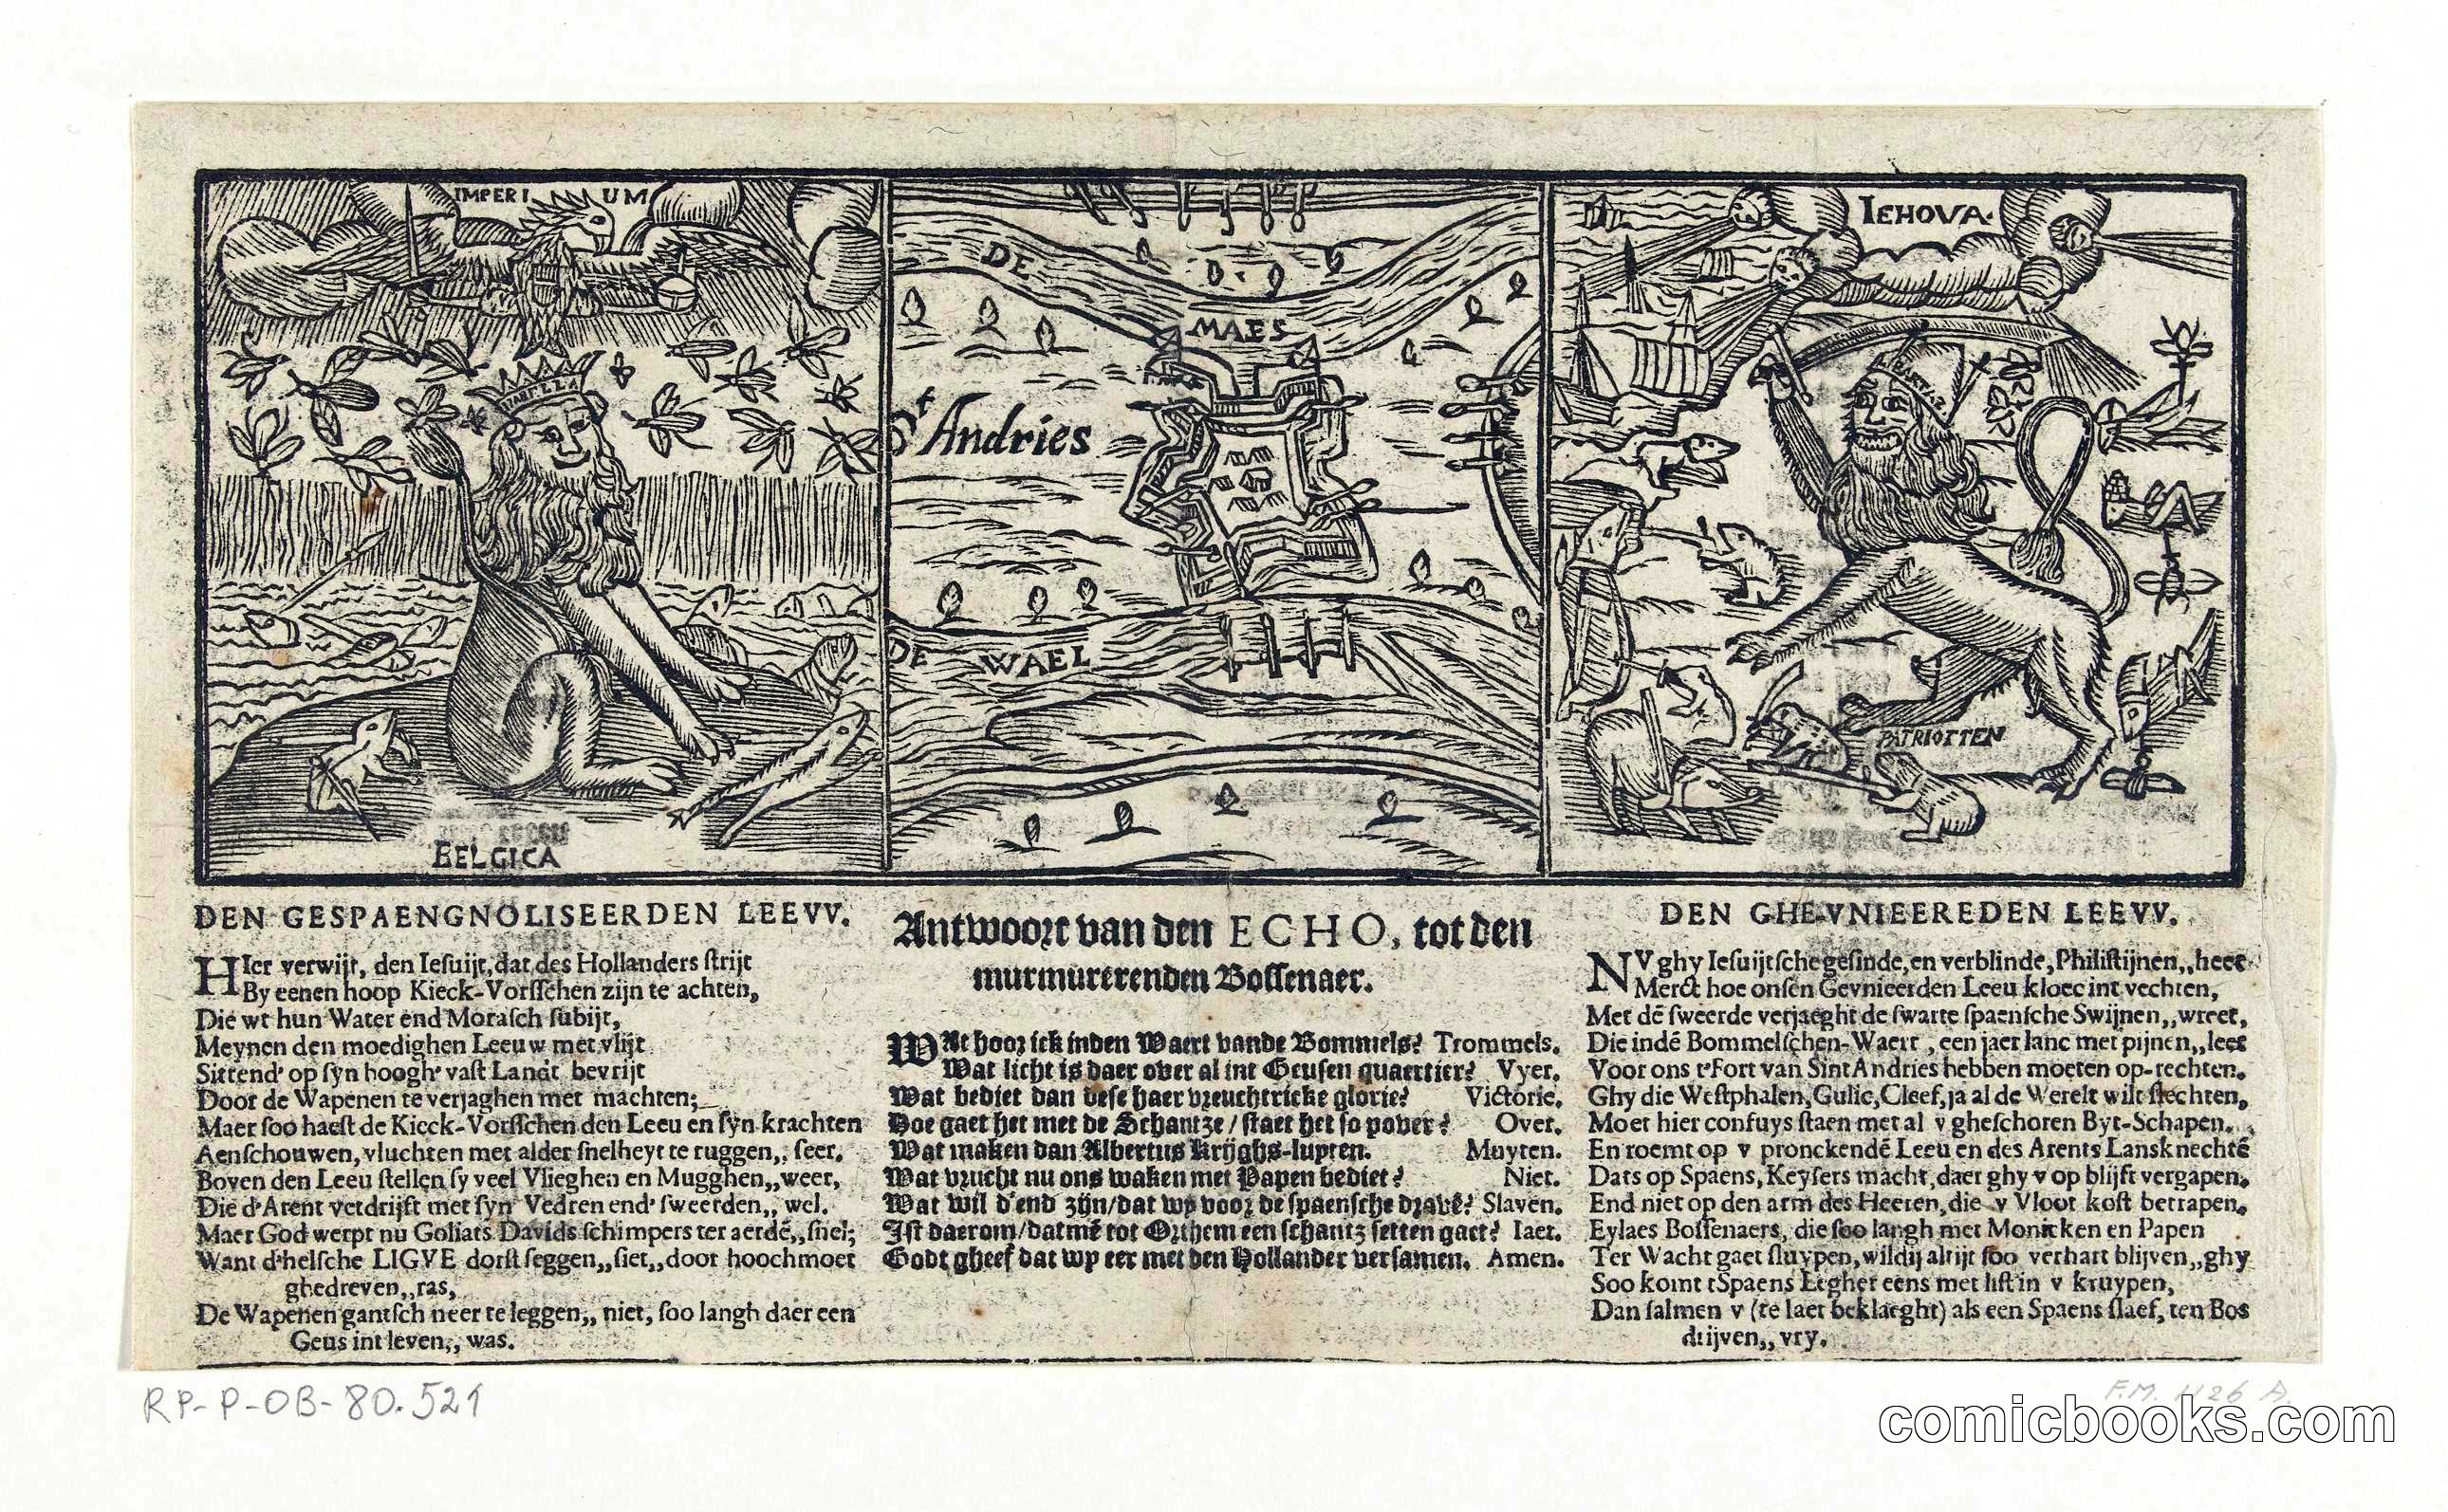 IMPERI UM
BELGICA
DE
MAES
St Andries
DE WAEL
IEHOVA.
PATRIOTTEN
DEN GESPAENGNOLISEERDEN LEEVV.
HIer verwijt, den Iesuijt, dat des Hollanders strijt
By eenen hoop Kieck-Vorsschen zijn te achten,
Die wt hun Water end Morasch subijt,
Meynen den moedighen Leeuw met vlijt
Sittend' op syn hoogh' vast Landt bevrijt
Door de Wapenen te verjaghen met machten;
Maer soo haest de Kieck-Vorsschen den Leeu en syn krachten
Aenschouwen, vluchten met alder snelheyt te ruggen,, seer,
Boven den Leeu stellen sy veel Vlieghen en Mugghen,, weer,
Die d'Arent verdrijft met syn Vedren end' sweerden,, wel.
Maer God werpt nu Goliats Davids schimpers ter aerdē,, snel;
Want d'helsche LIGVE dorst seggen,, siet,, door hoochmoet
ghedreven,, ras,
De Wapenen gantsch neer te leggen,, niet, soo langh daer een
Geus int leven,, was.
Antwoort van den ECHO, tot den
murmurerenden Bossenaer.
WAt hoor ick inden Waert vande Bommels? Trommels.
Wat licht is daer over al int Geusen quaertier? Vyer.
Wat bediet dan dese haer vreuchtricke glorie? Victorie.
Hoe gaet het met de Schantze / staet het so pover? Over.
Wat maken dan Albertus krijghs-lupten. Muyten.
Wat vrucht nu ons waken met Papen bediet? Niet.
Wat wil d'end zijn/dat wp voor de spaensche dravē? Slaven.
Ist daerom/datmē tot Orthem een schantz setten gaet? Iaet.
Godt gheef dat wp eer met den Hollander versamen. Amen.
DEN GHE-VNIEEREDEN LEEVV.
NV ghy Iesuijtsche gesinde, en verblinde, Philistijnen,, heet
Merct hoe onsen Gevnieerden Leeu kloec int vechten,
Met dē sweerde verjaeght de swarte spaensche Swijnen,, wreet,
Die indē Bommelschen-Waert, een jaer lanc met pijnen,, leet
Voor ons t'Fort van Sint Andries hebben moeten op-rechten.
Ghy die Westphalen, Gulic, Cleef, ja al de Werelt wilt slechten,
Moet hier confuys staen met al v gheschoren Byt-Schapen.
En roemt op v pronckendē Leeu en des Arents Lansknechtē
Dats op Spaens, Keysers macht, daer ghy v op blijft vergapen.
End niet op den arm des Heeren, die v Vloot kost betrapen.
Eylaes Bossenaers, die soo langh met Monicken en Papen
Ter Wacht gaet sluypen, wildij altijt soo verhart blijven,, ghy
Soo komt t'Spaens Legher eens met list in v kruypen,
Dan salmen v (te laet beklaeght) als een Spaens slaef, ten Bos
drijven,, vry.
RP-P-OB-80.521
F.M. 1126 A.
comicbooks.com